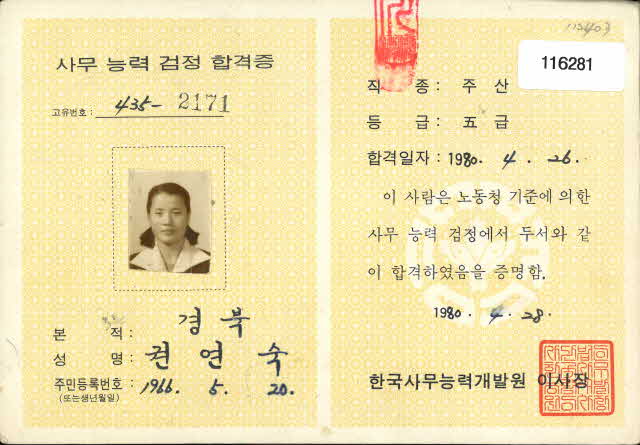 사무 능력 검정 합격증
고유번호 : 435- 2171
본 적 : 경 북
성 명 : 권 연 숙
주민등록번호 : 1966. 5. 20.
(또는생년월일)
116281
직 종 : 주 산
등 급 : 五 급
합격일자 : 1980. 4. 26.
이 사람은 노동청 기준에 의한
사무 능력 검정에서 두서와 같
이 합격하였음을 증명함.
1980. 4. 28.
한국사무능력개발원 이사장